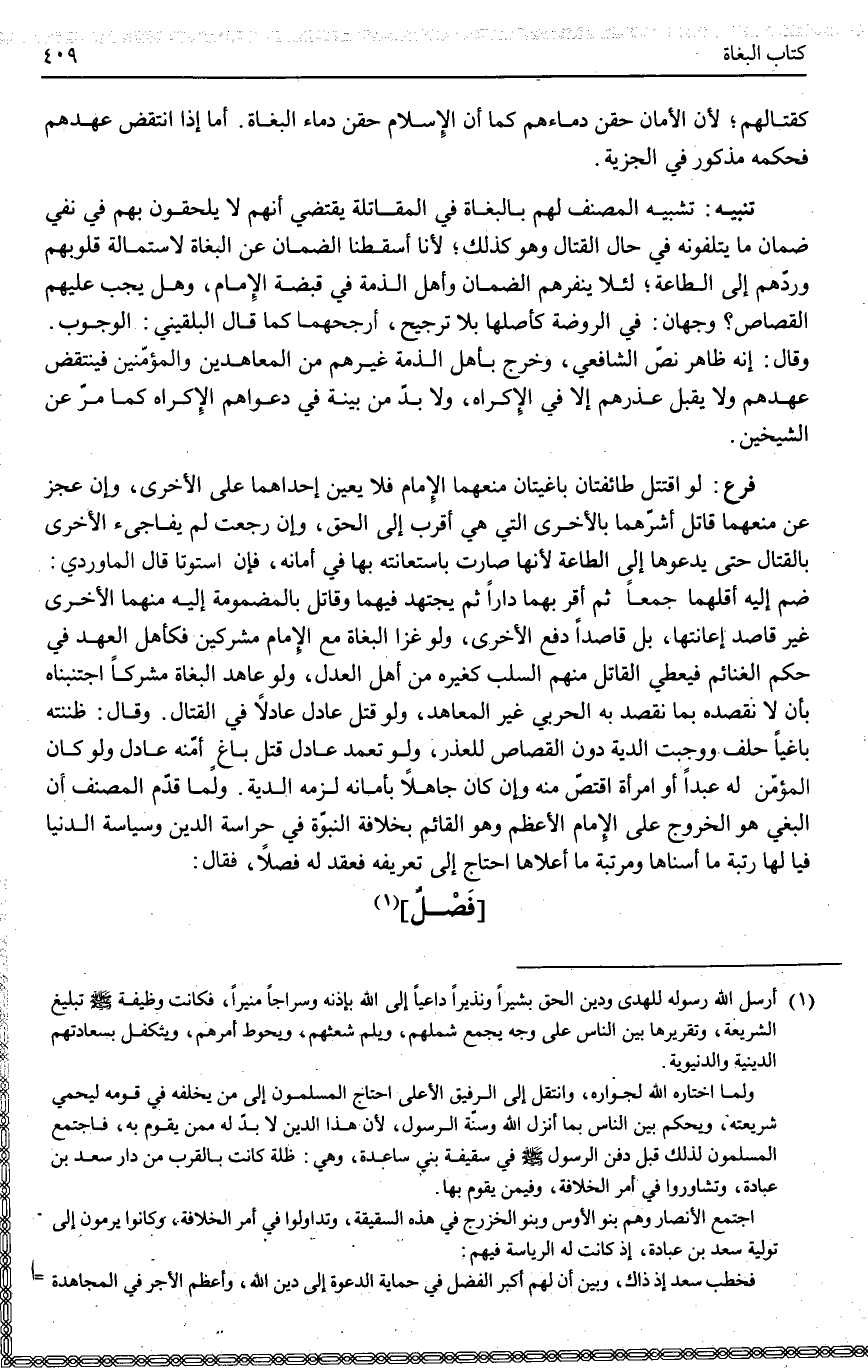 كتاب البغاة
٤٠٩
كقتالهم؛ لأن الأمان حقن دماءهم كما أن الإسلام حقن دماء البغاة. أما إذا انتقض عهدهم
فحكمه مذكور في الجزية.
تنبيه: تشبيه المصنف لهم بالبغاة في المقاتلة يقتضي أنهم لا يلحقون بهم في نفي
ضمان ما يتلفونه في حال القتال وهو كذلك؛ لأنا أسقطنا الضمان عن البغاة لاستمالة قلوبهم
وردّهم إلى الطاعة؛ لئلا ينفرهم الضمان وأهل الذمة في قبضة الإمام، وهل يجب عليهم
القصاص؟ وجهان: في الروضة كأصلها بلا ترجيح، أرجحهما كما قال البلقيني: الوجوب.
وقال: إنه ظاهر نصّ الشافعي، وخرج بأهل الذمة غيرهم من المعاهدين والمؤمّنين فينتقض
عهدهم ولا يقبل عذرهم إلا في الإكراه، ولا بدّ من بينة في دعواهم الإكراه كما مرّ عن
الشيخين.
فرع: لو اقتتل طائفتان باغيتان منعهما الإمام فلا يعين إحداهما على الأخرى، وإن عجز
عن منعهما قاتل أشرّهما بالأخرى التي هي أقرب إلى الحق، وإن رجعت لم يفاجىء الأخرى
بالقتال حتى يدعوها إلى الطاعة لأنها صارت باستعانته بها في أمانه، فإن استوتا قال الماوردي:
ضم إليه أقلهما جمعاً ثم أقر بهما داراً ثم يجتهد فيهما وقاتل بالمضمومة إليه منهما الأخرى
غير قاصد إعانتها، بل قاصداً دفع الأخرى، ولو غزا البغاة مع الإمام مشركين فكأهل العهد في
حكم الغنائم فيعطي القاتل منهم السلب كغيره من أهل العدل، ولو عاهد البغاة مشركاً اجتنبناه
بأن لا نقصده بما نقصد به الحربي غير المعاهد، ولو قتل عادل عادلاً في القتال. وقال: ظننته
باغياً حلف ووجبت الدية دون القصاص للعذر، ولو تعمد عادل قتل باغٍ أمّنه عادل ولو كان
المؤمّن له عبداً أو امرأة اقتصّ منه وإن كان جاهلاً بأمانه لزمه الدية. ولما قدّم المصنف أن
البغي هو الخروج على الإمام الأعظم وهو القائم بخلافة النبوّة في حراسة الدين وسياسة الدنيا
فيا لها رتبة ما أسناها ومرتبة ما أعلاها احتاج إلى تعريفه فعقد له فصلاً، فقال:
[فَصْلٌ](١)
(١) أرسل الله رسوله للهدى ودين الحق بشيراً ونذيراً داعياً إلى الله بإذنه وسراجاً منيراً، فكانت وظيفة ﷺ تبليغ
الشريعة، وتقريرها بين الناس على وجه يجمع شملهم، ويلم شعثهم، ويحوط أمرهم، ويتكفل بسعادتهم
الدينية والدنيوية.
ولما اختاره الله لجواره، وانتقل إلى الرفيق الأعلى احتاج المسلمون إلى من يخلفه في قومه ليحمي
شريعته، ويحكم بين الناس بما أنزل الله وسنّة الرسول، لأن هذا الدين لا بدّ له ممن يقوم به، فاجتمع
المسلمون لذلك قبل دفن الرسول ﷺ في سقيفة بني ساعدة، وهي: ظلة كانت بالقرب من دار سعد بن
عبادة، وتشاوروا في أمر الخلافة، وفيمن يقوم بها.
اجتمع الأنصار وهم بنو الأوس وبنو الخزرج في هذه السقيفة، وتداولوا في أمر الخلافة، وكانوا يرمون إلى
تولية سعد بن عبادة، إذ كانت له الرياسة فيهم:
فخطب سعد إذ ذاك، وبين أن لهم أكبر الفضل في حماية الدعوة إلى دين الله، وأعظم الأجر في المجاهدة =